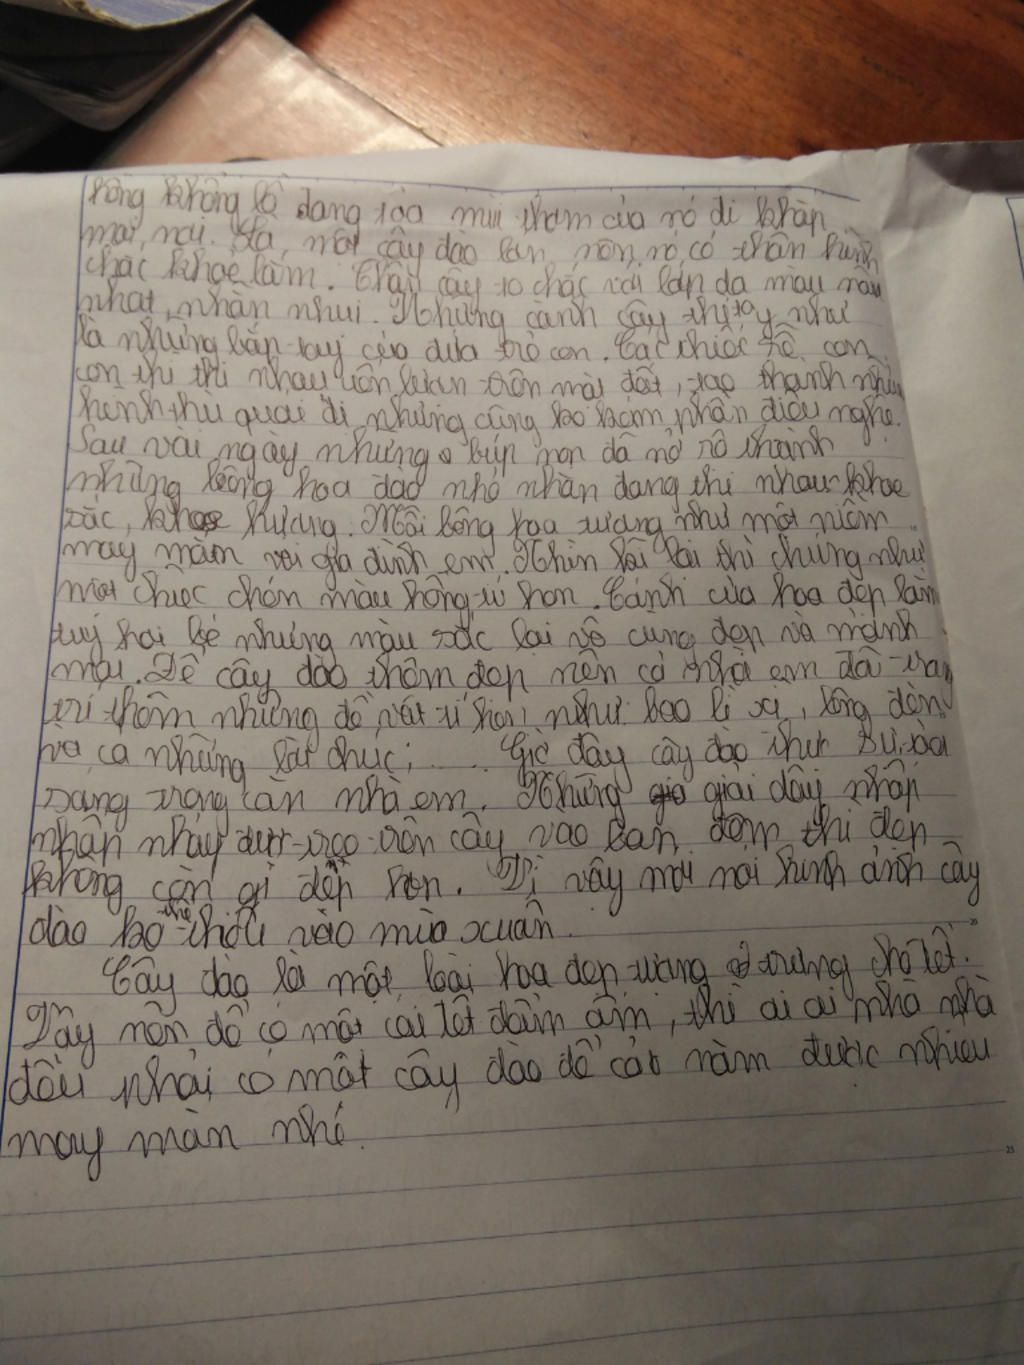 hồng khổng lồ đang tỏa mùi thơm của nó đi khắp
mọi nơi. Là một cây đào lên nó có thân hình
chắc khoẻ lắm. Thân cây to chắc với làn da màu nâu
nhạt, nhăn nhui. Những cành cây thì tay như
là những bắp tay của đứa trẻ con. Các chiếc rễ con
con thì thi nhau uốn lượn trên mặt đất, tạo thành nhiều
hình thù quái dị nhưng cũng ko kém phần điệu nghệ.
Sau vài ngày những búp non đã nở rộ thành
những bông hoa đào nhỏ nhắn đang thi nhau khoe
sắc, khoe hương. Mỗi bông hoa tượng như một niềm
may mắn với gia đình em. Nhìn lâu lại thì chúng như
một chiếc chén màu hồng tí hon. Cánh của hoa đẹp lắm
tuy hơi bé nhưng màu sắc lại vô cùng đẹp và mảnh
mại. Để cây đào thêm đẹp nên cả nhà em đã trang
trí thêm những đồ vật tí hon như bao lì xì, lồng đèn
và cả những lời chúc; ..... Giờ đây cây đào thực sự tỏa
sáng trong căn nhà em. Những giải dây nhấp
nhấp nháy được treo trên cây vào ban đêm thì đẹp
không còn gì đẹp hơn. Vì vậy mọi nơi hình ảnh cây
đào ko thể thiếu vào mùa xuân.
Cây đào là một loài hoa đẹp tượng trưng cho tết.
Vậy nên để có một cái tết đầm ấm, thì ai ai nhà nhà
đều phải có một cây đào để cả năm được nhiều
may mắn nhé.